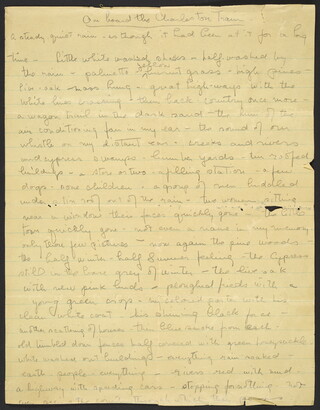 On board the Charleston Train
a steady quiet rain - as though it had been at it for a long
time - little white washed cabins - half washed by
the rain - palmetto yellow grass - high pines
live oak moss hung - great high-ways with the
white line weaving - then back country once more -
a wagon trail in the dark sand - the hum of the
air conditioning fan in my ear - the sound of our
wheels on my distant ear - creeks and rivers
and cypress swamps - lumber yards - tin roofed
buildings - a store or two - a filling station - a few
dogs - some children - a group of men huddled
under a tin roof out of the rain - two women sitting
near a window their faces quickly gone - the little
town quickly gone - not even a name in my memory
only these few pictures - now again the pine woods
the half winter - half summer feeling - the cypress
still in the bare grey of winter - the live oak
with new pink buds - ploughed fields with a
young green crops - the colored porter with his
clean white coat - his shining black face -
another scattering of houses thin blue smoke from each
old tumbled down fences half covered with green
white washed out buildings - everything rain soaked -
earth - people - everything - rivers red with mud
a highway with speeding cars - stopping for nothing